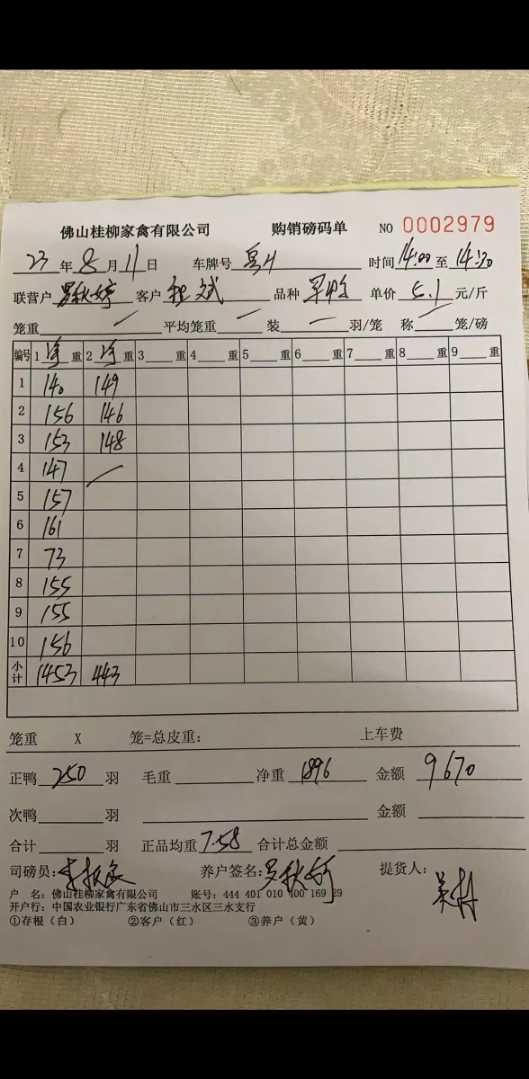 佛山桂柳家禽有限公司 购销磅码单 NO 0002979
23 年 8 月 11 日 车牌号 时间 14:00 至 14:30
联营户 客户 品种 单价 5.1 元/斤
笼重 平均笼重 装 羽/笼 称 笼/磅
编号 1 净 重 2 净 重 3 重 4 重 5 重 6 重 7 重 8 重 9 重
1 140 149
2 156 146
3 153 148
4 147
5 157
6 161
7 73
8 155
9 155
10 156
小计 1453 443
笼重 X 笼=总皮重: 上车费
正鸭 250 羽 毛重 净重 1896 金额 9670
次鸭 羽 金额
合计 羽 正品均重 7.58 合计总金额
司磅员: 养户签名: 提货人:
户 名: 佛山桂柳家禽有限公司 账号: 444 401 010 400 169 29
开户行: 中国农业银行广东省佛山市三水区三水支行
①存根(白) ②客户(红) ③养户(黄)